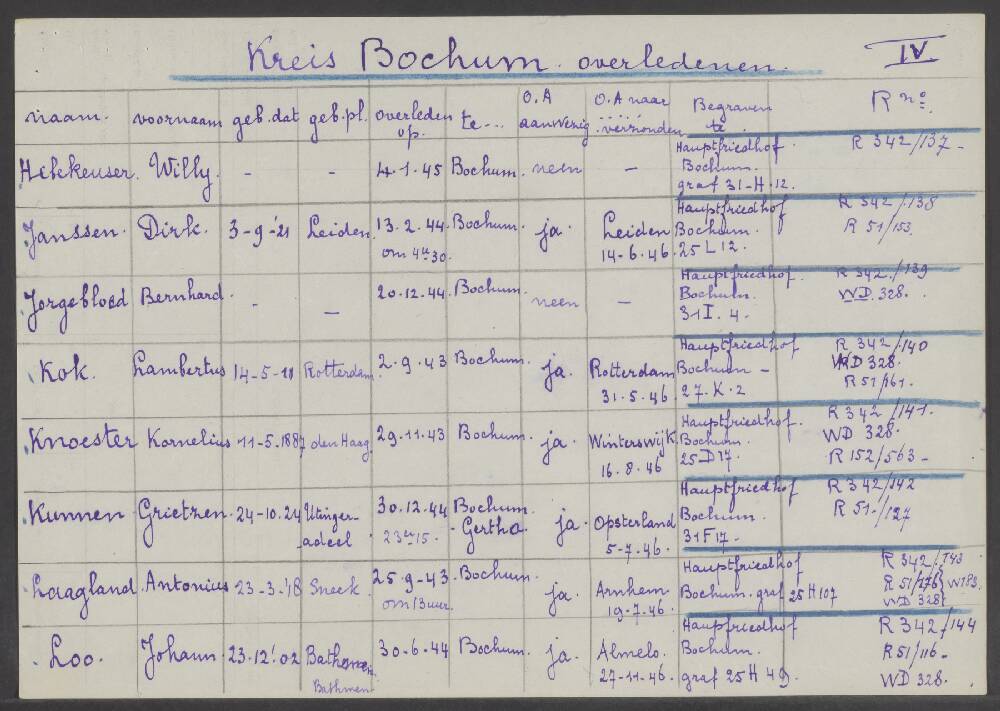 Kreis Bochum. overledenen. IV
naam. voornaam geb.dat geb.pl. overleden op. te... O.A aanwezig O.A naar verzonden Begraven te R no.
Hebekeuser. Willy. - - 4.1.45 Bochum. neen - Hauptfriedhof Bochum. graf 31-H-12. R 342/137-
Janssen. Dirk. 3-9-'21 Leiden. 13.2.44. om 4u30. Bochum. ja. Leiden 14-6.46. Hauptfriedhof Bochum. 25 L 12. R 342/138 R 51/153.
Jorgebloed Bernhard. - - 20.12.44. Bochum. neen - Hauptfriedhof. Bochum. 31 I. 4. R 342/139 WD. 328.
Kok. Lambertus 14-5-11 Rotterdam. 2-9.43 Bochum. ja. Rotterdam 31.5.46. Hauptfriedhof Bochum - 27.K.2 R 342/140 WD 328. R 51/161.
Knoester Kornelius 11-5.1887 den Haag. 29.11.43 Bochum. ja. Winterswijk. 16.8.46 Hauptfriedhof. Bochum. 25 D 17. R 342/141. WD 328. R 152/563-
Kunnen Grietzen. 24-10.24 Utinger-adeel 30.12.44 23u15. Bochum-Gertha. ja. Opsterland 5-7.46. Hauptfriedhof Bochum. 31 F 17. R 342/142 R 51./127
Laagland. Antonius 23-3-'18 Sneek. 25.9-43. om 13 uur. Bochum. ja. Arnhem. 19-7.46. Hauptfriedhof Bochum. graf 25 H 107 R 342/143 R 51/276 WD 328
Loo. Johann 23.12'.02 Bathmen. Bathmen 30-6-44 Bochum. ja. Almelo. 27-11-46. Hauptfriedhof Bochum. graf 25 H 49. R 342/144 R 51/116- WD 328.